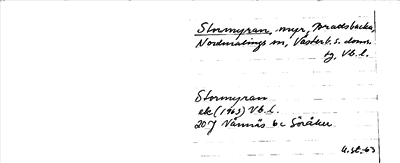 Stormyran, myr, Bradsbacka,
Nordmalings sn, Västerb. s. doms.
tg, Vb. l.
Stormyran
ek (1963) Vb. l.
20 J Vännäs 6 c Söråker